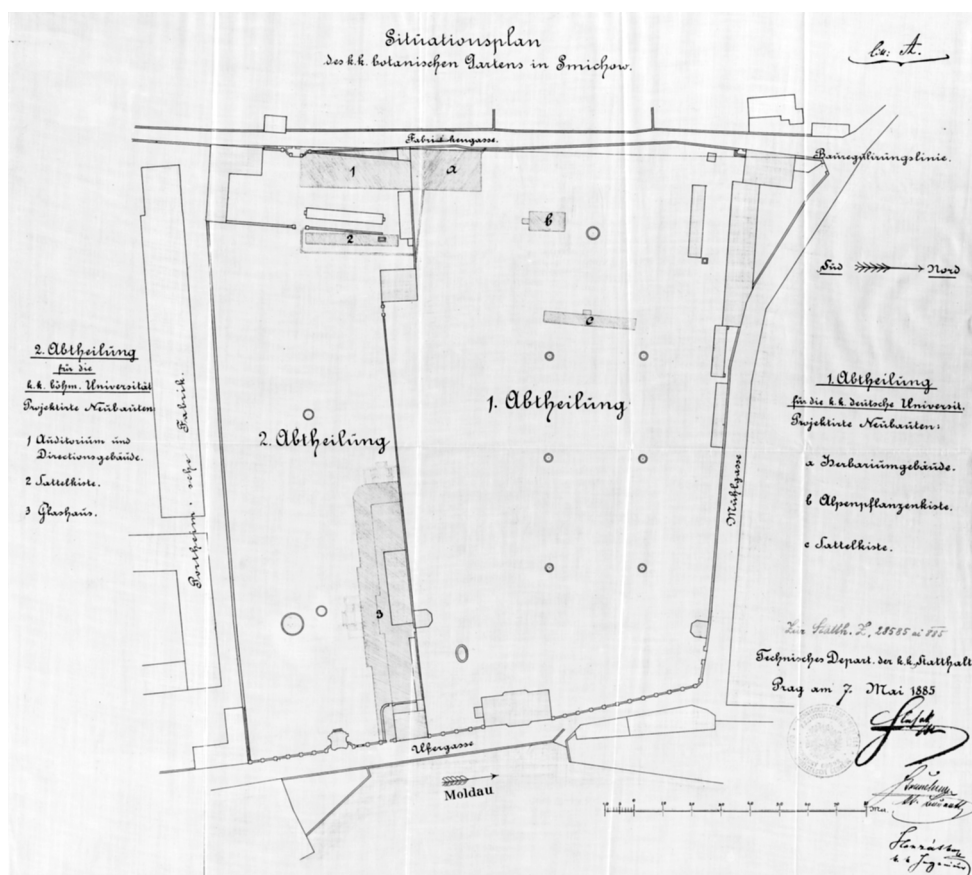 Situationsplan
des k.k. botanischen Gartens in Smichow.
Litt: A.
Fabrikengasse.
Bauregulirungslinie.
1
a
2
b
c
Süd
Nord
2. Abtheilung
für die
k.k. böhm. Universität
Projektirte Neubauten
1 Auditorium und
Directionsgebäude.
2 Sattelkiste.
3 Glashaus.
Portheim'sche Fabrik.
2. Abtheilung
1. Abtheilung
3
Mühlgasse
1. Abtheilung
für die k.k. deutsche Universit.
Projektirte Neubauten:
a Herbariumgebäude.
b Alpenpflanzenkiste.
c Sattelkiste.
Zur Statth. Z. 28585
Technisches Depart. der k.k. Statthalt
Prag am 7. Mai 1885
Ufergasse
Moldau